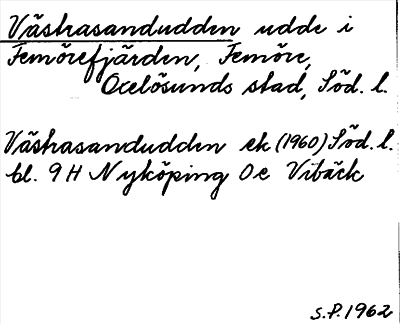 Väskasandudden udde i
Femörefjärden, Femöre,
Oxelösunds stad, Söd. l.
Väskasandudden ek (1960) Söd. l.
bl. 9 H Nyköping 0 e Vibäck
S.P. 1962